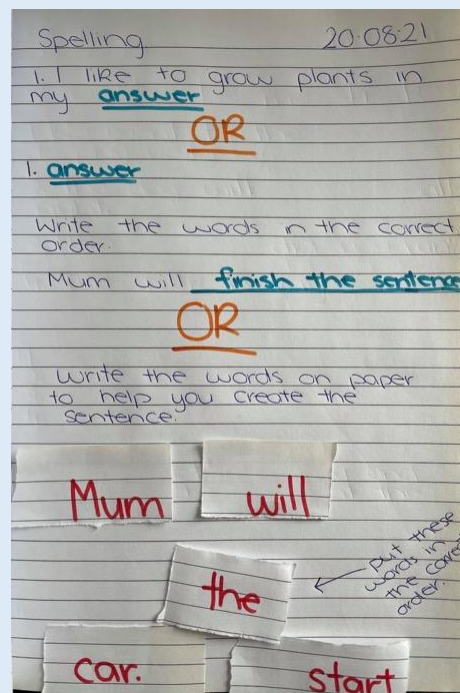 Spelling 20.08.21
1. I like to grow plants in
my answer
OR
1. answer
Write the words in the correct
order.
Mum will finish the sentence
OR
Write the words on paper
to help you create the
sentence.
Mum will
the
put these
words in
the correct
order.
car. start